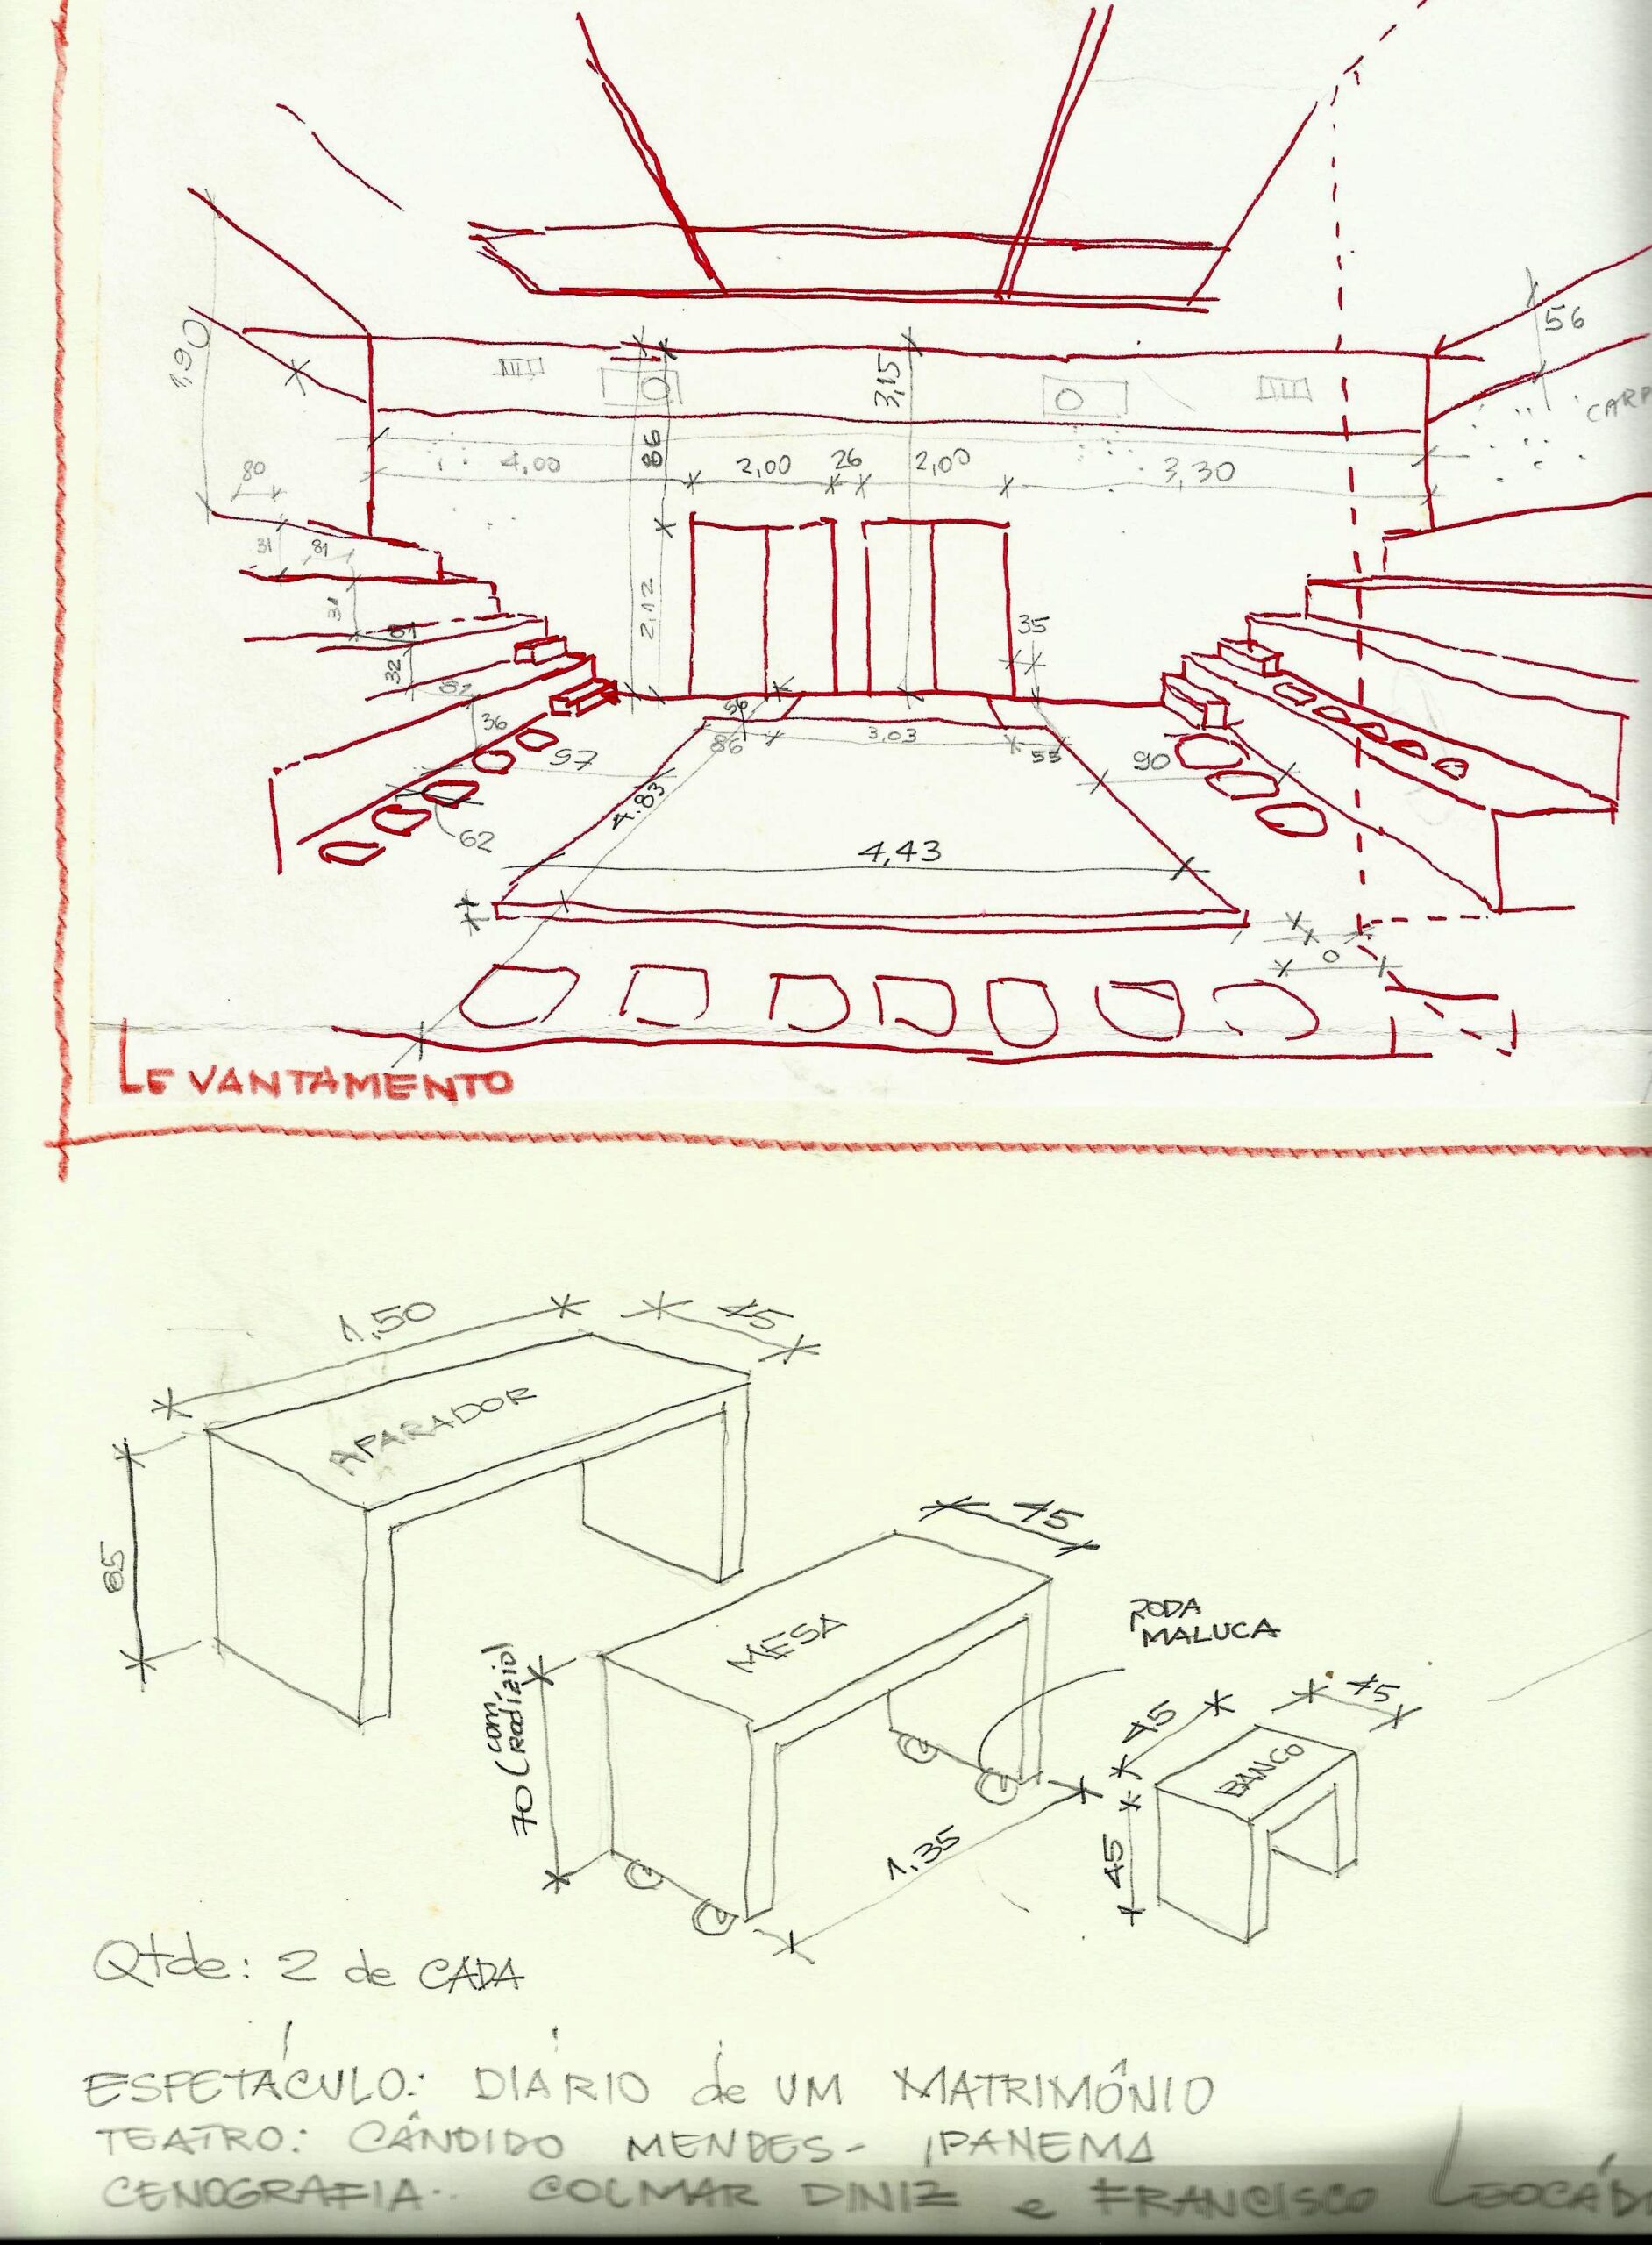 1,90
56
CARP
3,15
86
4,00
2,00
26
2,00
3,30
80
31
81
31
81
32
82
36
2,12
35
56
86
3,03
55
97
90
4.83
62
4,43
0
LEVANTAMENTO
1,50
45
APARADOR
85
45
MESA
RODA
MALUCA
70 (com rodízio)
1,35
45
45
BANCO
45
Qtde: 2 de CADA
ESPETÁCULO: DIÁRIO de UM MATRIMÔNIO
TEATRO: CÂNDIDO MENDES - IPANEMA
CENOGRAFIA: COLMAR DINIZ e FRANCISCO LEOCÁD